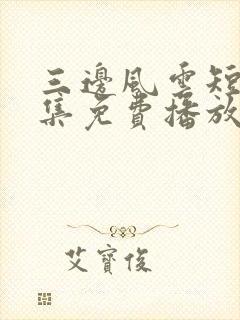 三邊風雲短
集免費播放
艾寶俊